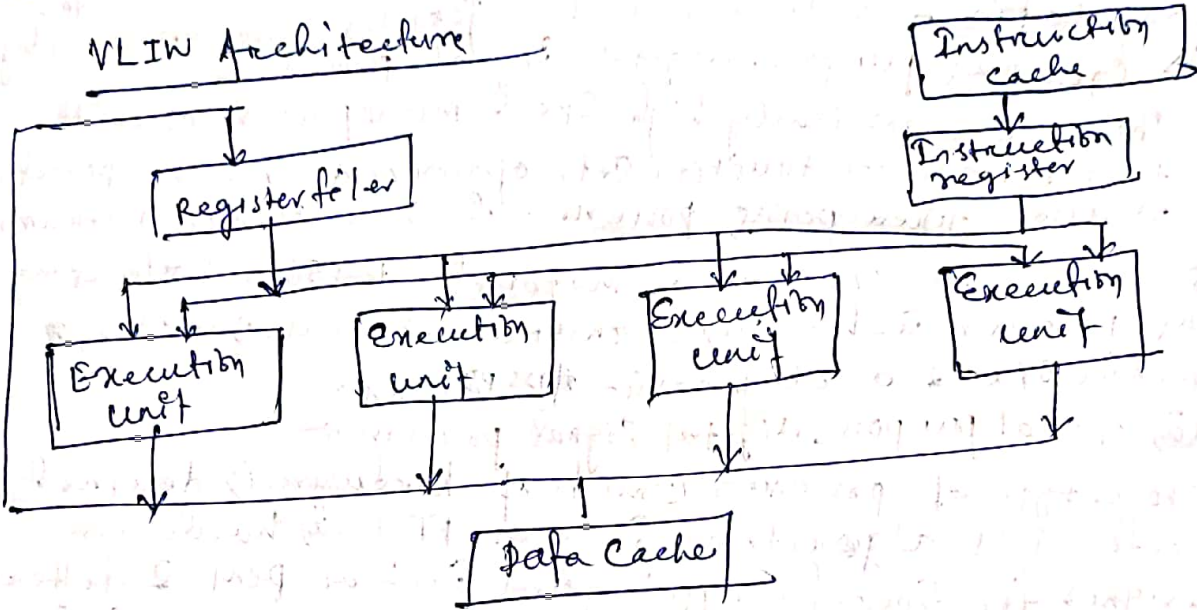 VLIW Architecture
Instruction
cache
Instruction
register
Register filer
Execution
unit
Execution
unit
Execution
unit
Execution
unit
Data Cache